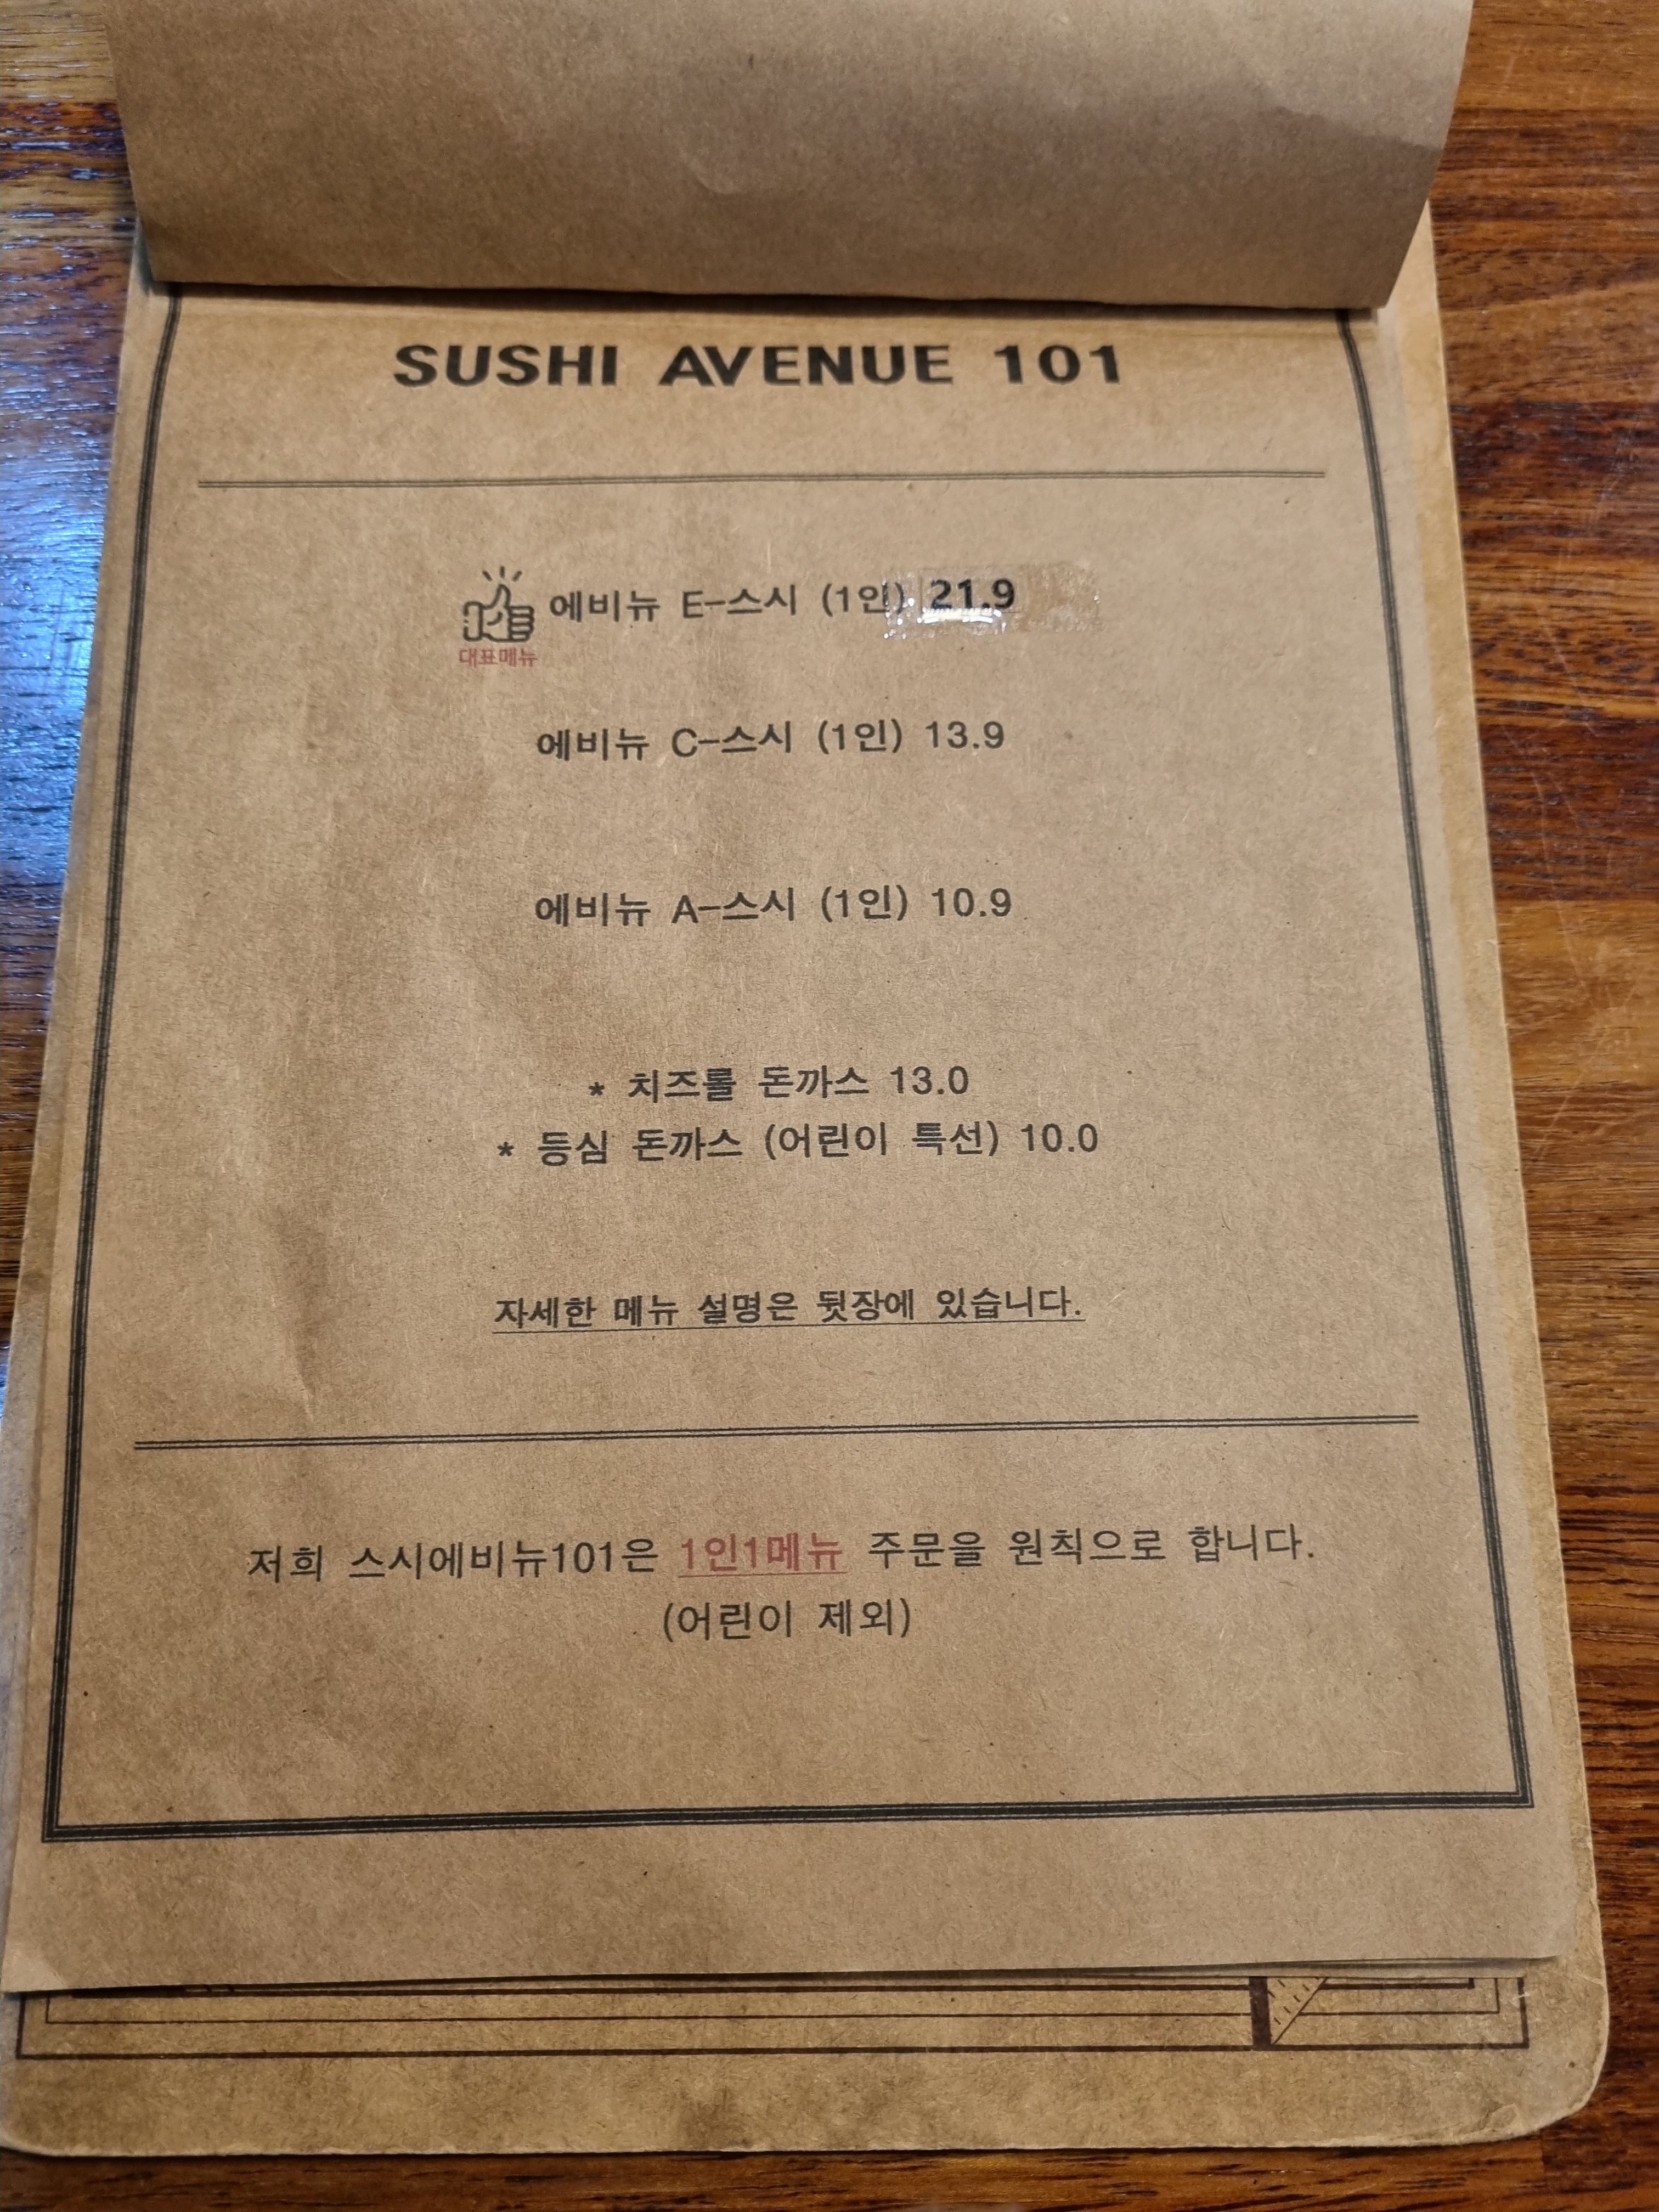 SUSHI AVENUE 101
에비뉴 E-스시 (1인) 21.9
대표메뉴
에비뉴 C-스시 (1인) 13.9
에비뉴 A-스시 (1인) 10.9
* 치즈롤 돈까스 13.0
* 등심 돈까스 (어린이 특선) 10.0
자세한 메뉴 설명은 뒷장에 있습니다.
저희 스시에비뉴101은 1인1메뉴 주문을 원칙으로 합니다.
(어린이 제외)